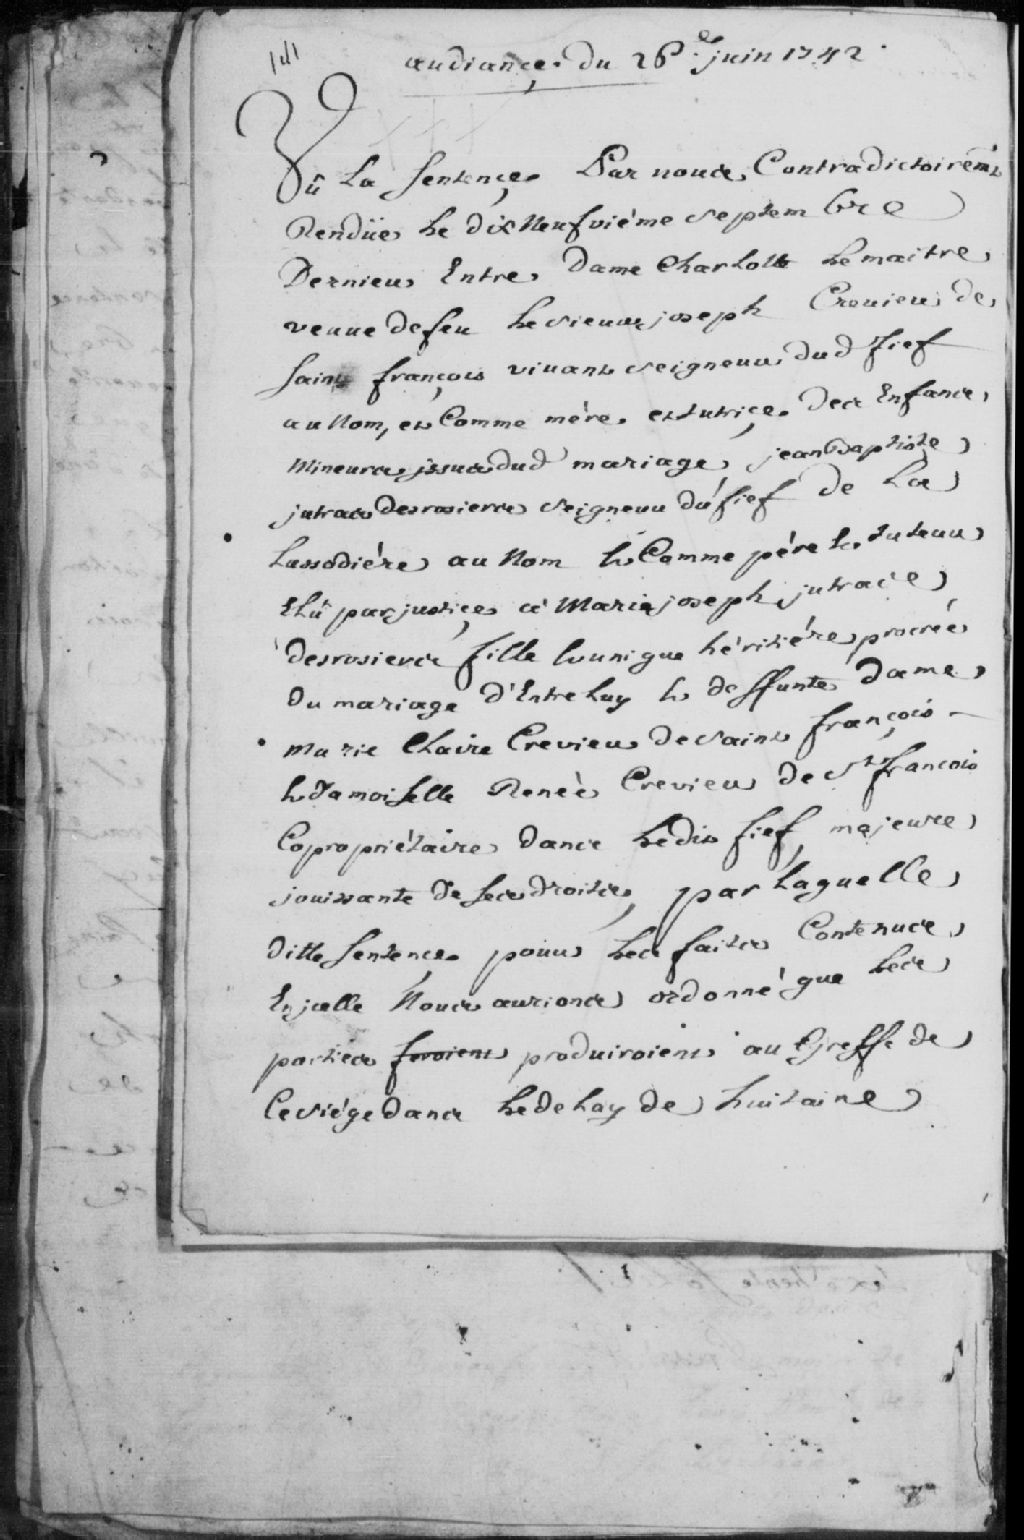 141
audiançe du 26e juin 1742
Vû La Sentençe Par nous Contradictoiremt
Rendüe Le dix Neufviéme Septembre
Dernier Entre Dame Charlotte Lemaitre
veuve de feu Le sieur joseph Crevier de
Saint françois vivant seigneur dud fief
au Nom, et Comme mére et tutriçe des Enfans
Mineurs issus dud mariage, jean Baptiste
jutras desrosiers Seigneur du fief de La
Lussodiére au Nom Et Comme pére Et tuteur
Elû par justiçe à Marie joseph jutras
desrosiers fille Et unique héritiére procréé
du mariage d'Entre Luy Et deffunte Dame
Marie Claire Crevier de Saint françois
Et Damoiselle Renée Crevier de St françois
Copropriétaire dans Ledit fief, majeure
jouissante de Ses droits, par Laquelle
ditte Sentençe pour Les faits Contenus
En jcelle Nous aurions ordonné que Les
parties produiroient au Greffe de
Ce siége dans Le delay de huitaine